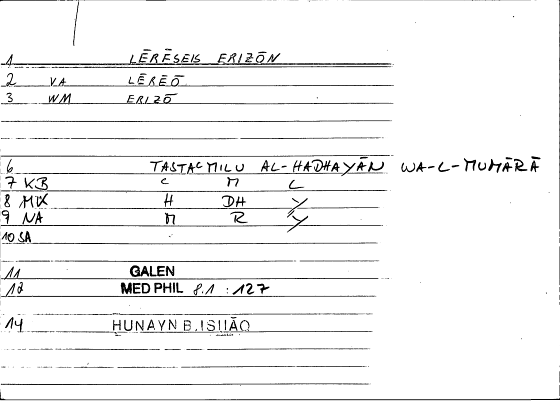 1 LĒRĒSEIS ERIZŌN
2 VA LĒREŌ
3 WM ERIZŌ
6 TASTAcMILU AL-HADHAYĀN WA-L-MUMĀRĀ
7 KB C M L
8 MIX H DH Y
9 NA M R Y
10 SA
11 GALEN
12 MED PHIL 8.1 :127
14 HUNAYN B. ISHĀQ